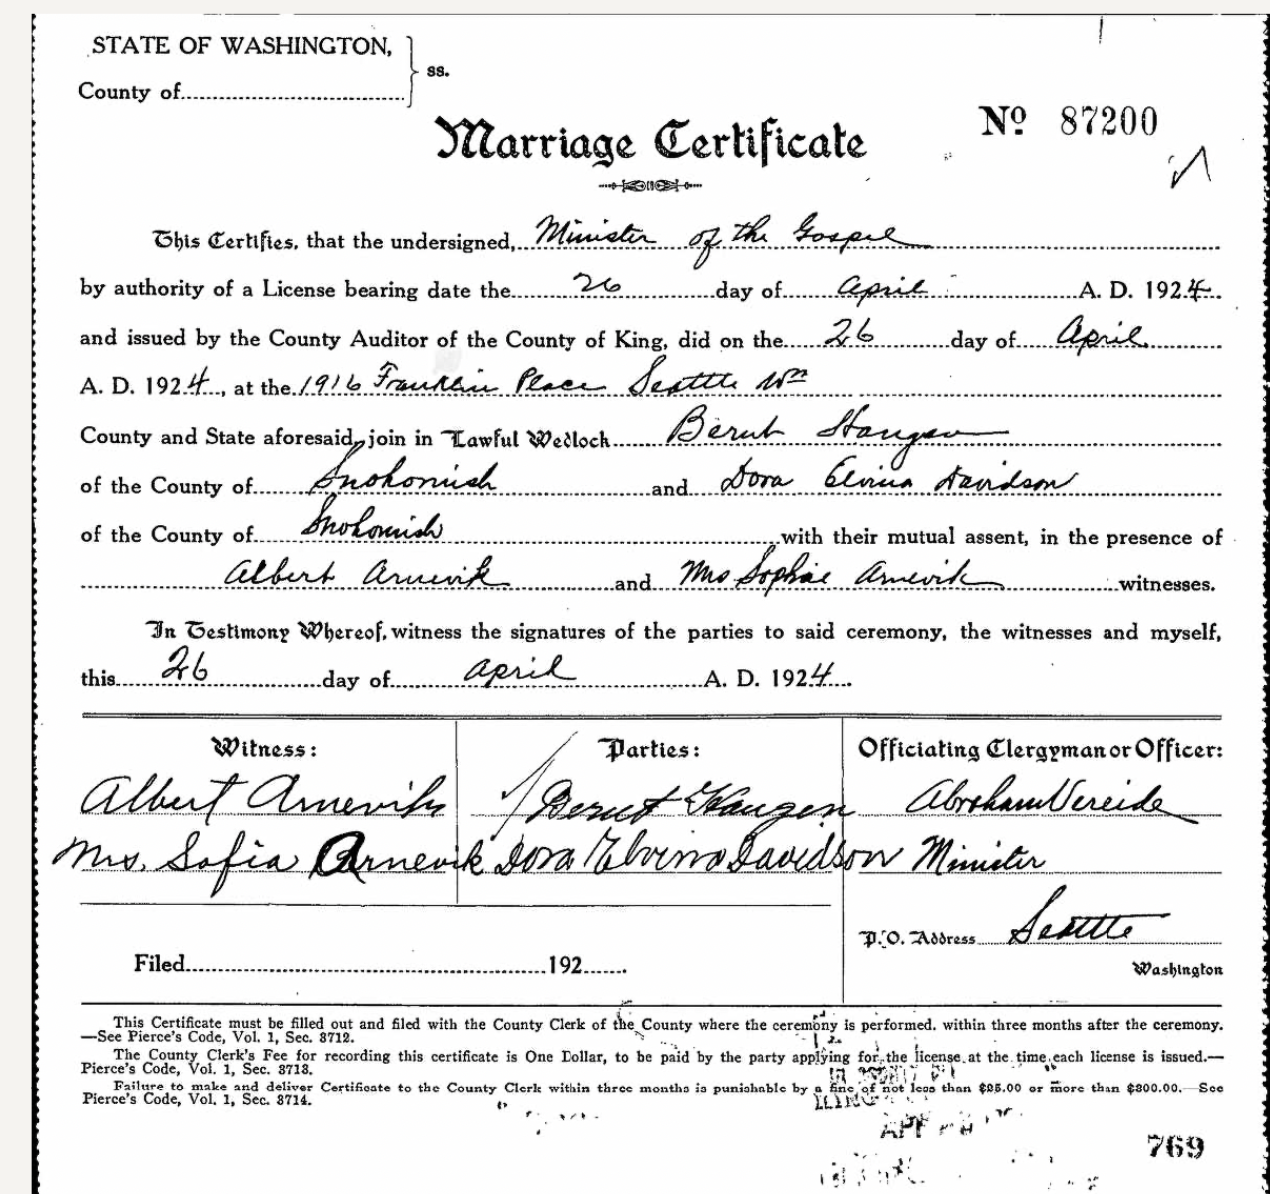 STATE OF WASHINGTON,
County of ss.
Marriage Certificate
No 87200
This Certifies, that the undersigned, Minister of the Gospel
by authority of a License bearing date the 26 day of April A. D. 1924.
and issued by the County Auditor of the County of King, did on the 26 day of April
A. D. 1924, at the 1916 Franklin Place Seattle Wn
County and State aforesaid, join in Lawful Wedlock Bernt Haugen
of the County of Snohomish and Dora Elvina Davidson
of the County of Snohomish with their mutual assent, in the presence of
Albert Arnevik and Mrs Sophie Arnevik witnesses.
In Testimony Whereof, witness the signatures of the parties to said ceremony, the witnesses and myself,
this 26 day of April A. D. 1924.
Witness: Parties: Officiating Clergyman or Officer:
Albert Arnevik Bernt Haugen Abraham Vereide
Mrs. Sofia Arnevik Dora Elvina Davidson Minister
P. O. Address Seattle
Filed 192
Washington
This Certificate must be filled out and filed with the County Clerk of the County where the ceremony is performed, within three months after the ceremony.
—See Pierce's Code, Vol. 1, Sec. 8712.
The County Clerk's Fee for recording this certificate is One Dollar, to be paid by the party applying for the license at the time each license is issued.—
Pierce's Code, Vol. 1, Sec. 8718.
Failure to make and deliver Certificate to the County Clerk within three months is punishable by a fine of not less than $25.00 or more than $300.00.—See
Pierce's Code, Vol. 1, Sec. 8714.
769